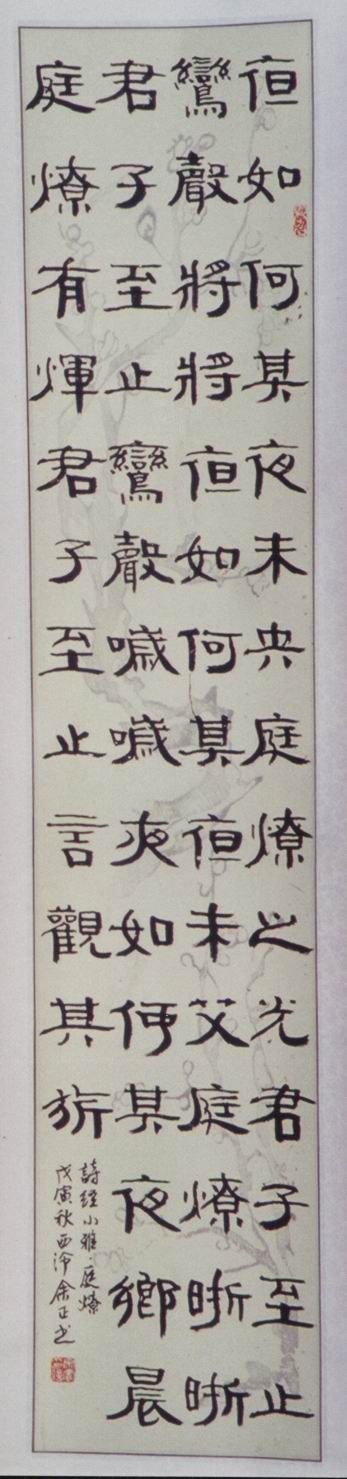 亱如何其夜未央庭燎之光君子至止
鸞聲將將亱如何其亱未艾庭燎晣晣
君子至止鸞聲噦噦夜如何其夜鄉晨
庭燎有煇君子至止言觀其旂
詩經小雅·庭燎
戊寅秋西泠余正书